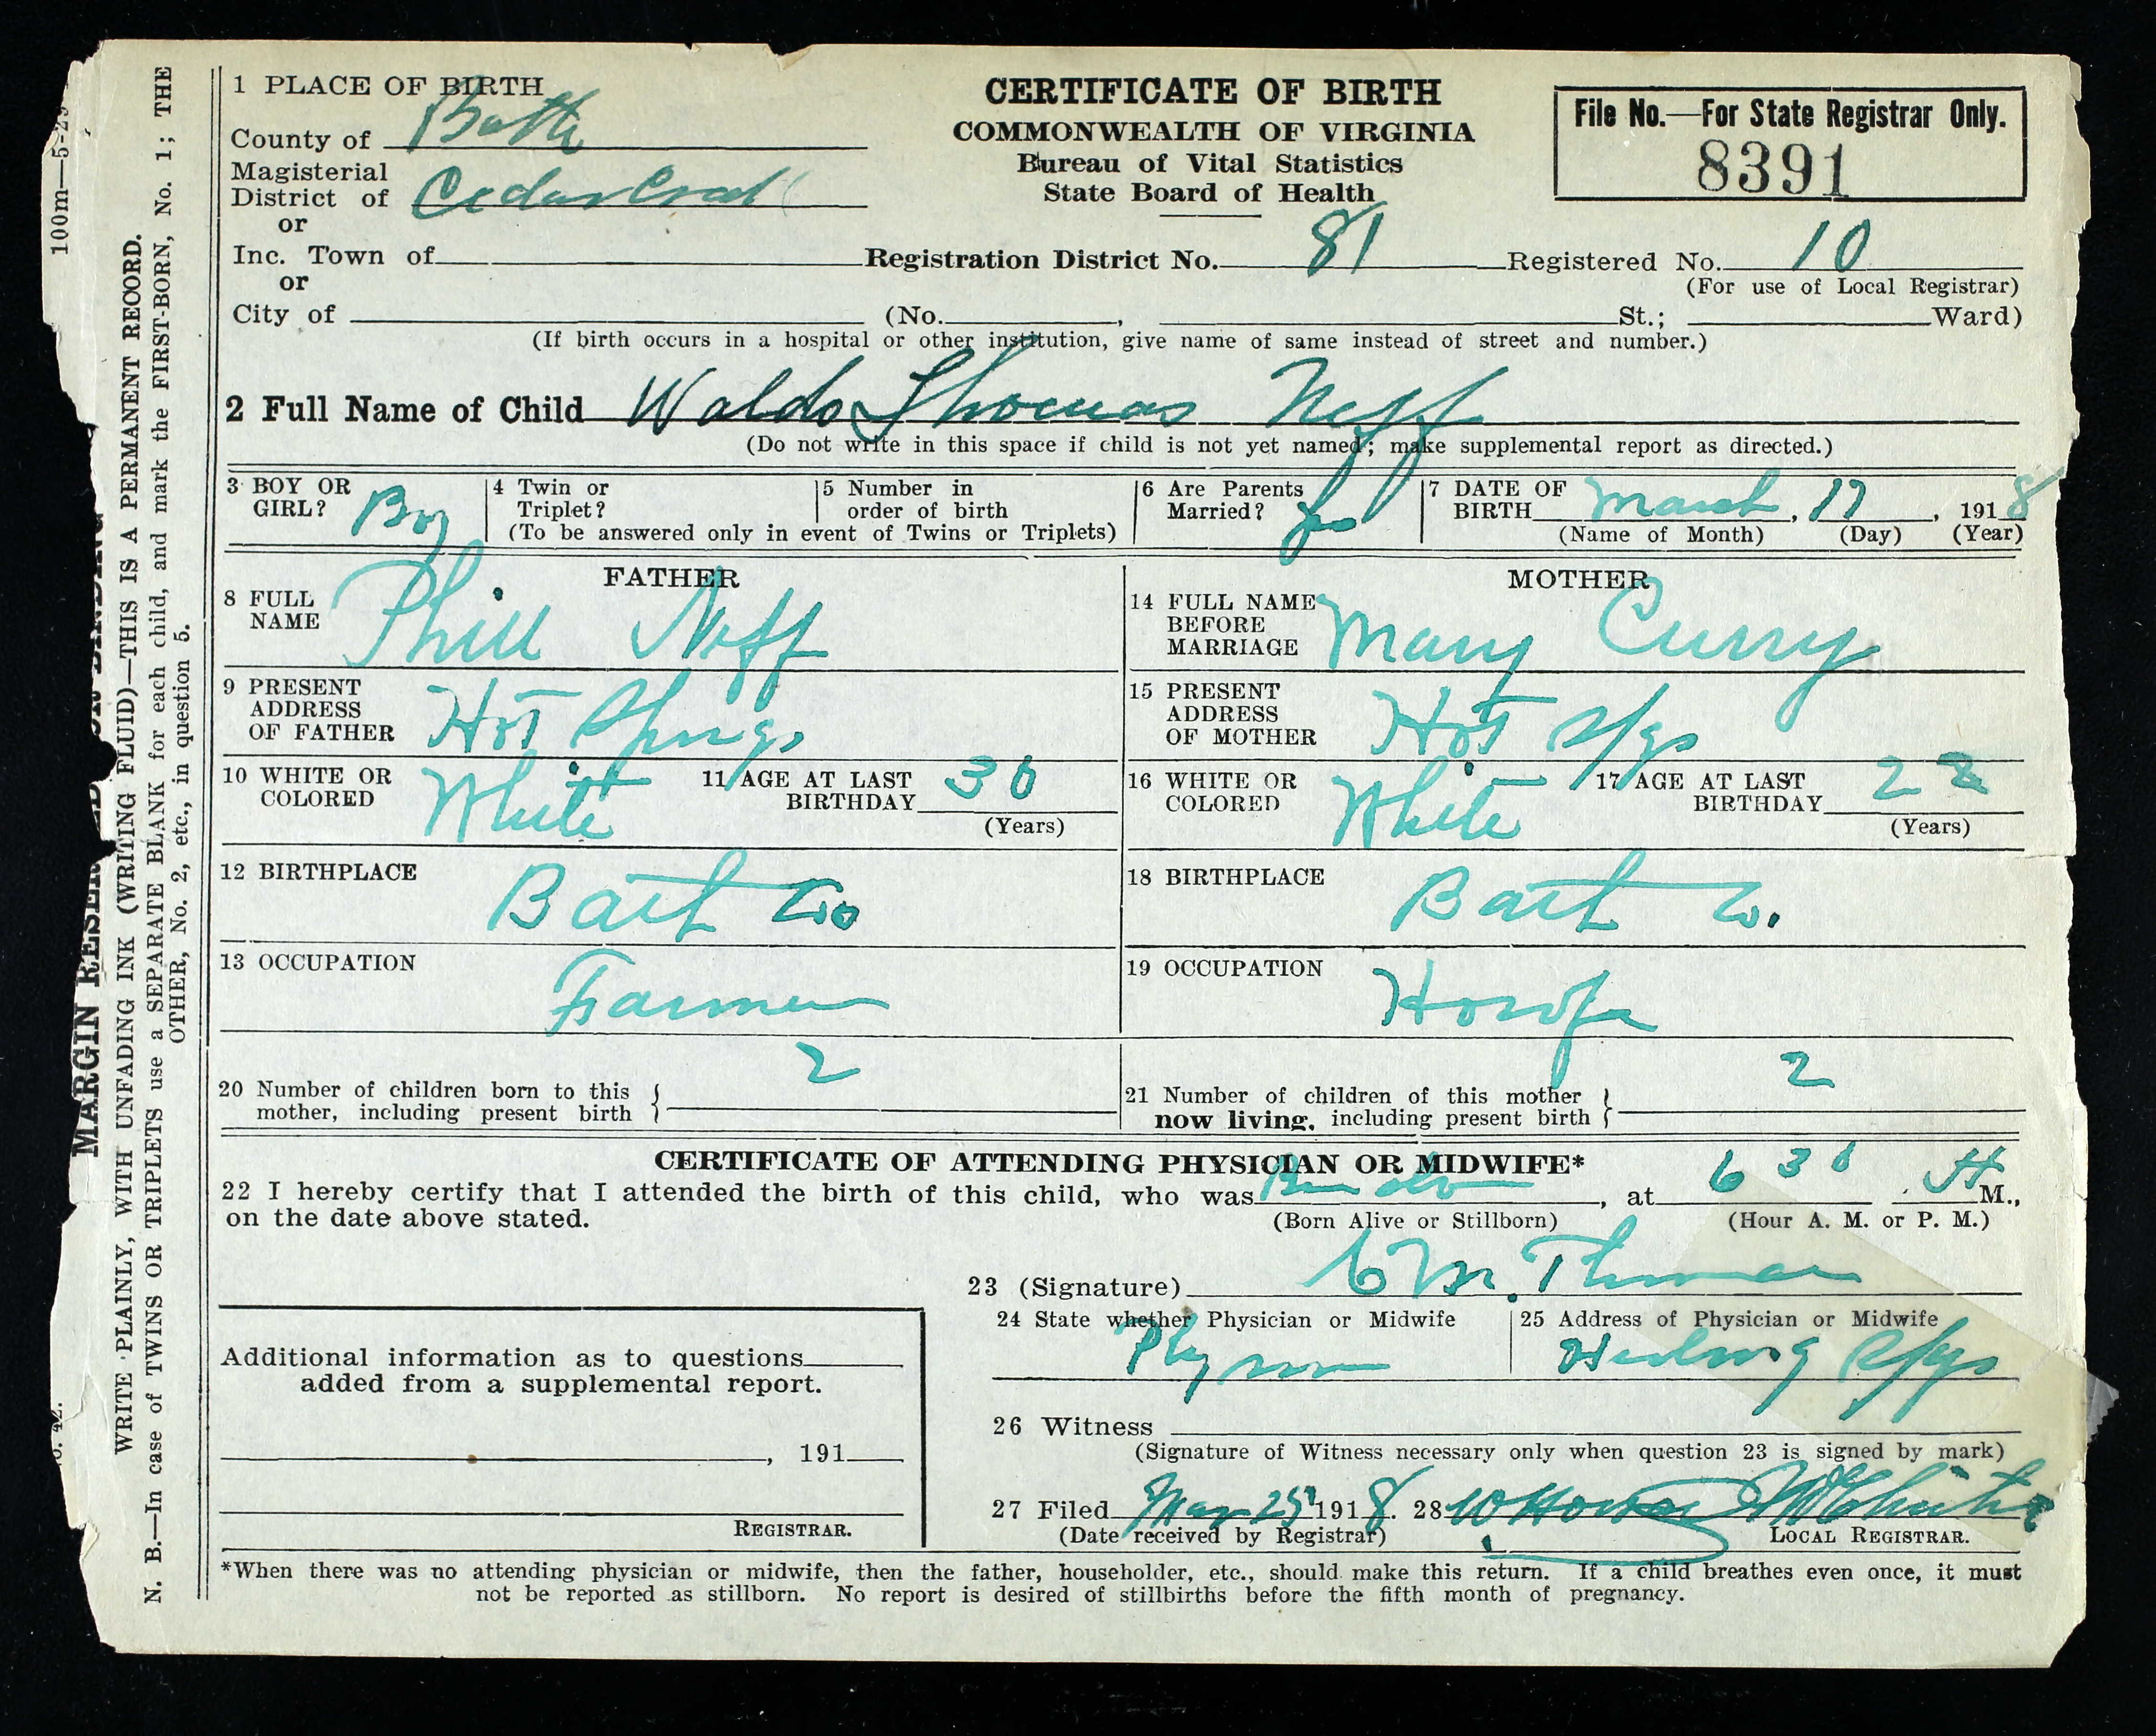 1 PLACE OF BIRTH
County of Bath
Magisterial
District of Cedar Creek
or
Inc. Town of
or
City of (No. , St.; Ward)
CERTIFICATE OF BIRTH
COMMONWEALTH OF VIRGINIA
Bureau of Vital Statistics
State Board of Health
File No.—For State Registrar Only.
8391
Registration District No. 81 Registered No. 10
(For use of Local Registrar)
(If birth occurs in a hospital or other institution, give name of same instead of street and number.)
2 Full Name of Child Waldo Thomas Neff
(Do not write in this space if child is not yet named; make supplemental report as directed.)
3 BOY OR GIRL? Boy
4 Twin or Triplet?
5 Number in order of birth
(To be answered only in event of Twins or Triplets)
6 Are Parents Married? yes
7 DATE OF BIRTH March, 17, 1918
(Name of Month) (Day) (Year)
FATHER
8 FULL NAME Phill Neff
9 PRESENT ADDRESS OF FATHER Hot Springs
10 WHITE OR COLORED White
11 AGE AT LAST BIRTHDAY 30
(Years)
12 BIRTHPLACE Bath Co
13 OCCUPATION Farmer
MOTHER
14 FULL NAME BEFORE MARRIAGE Mary Curry
15 PRESENT ADDRESS OF MOTHER Hot Spgs
16 WHITE OR COLORED White
17 AGE AT LAST BIRTHDAY 22
(Years)
18 BIRTHPLACE Bath Co.
19 OCCUPATION
20 Number of children born to this mother, including present birth 2
21 Number of children of this mother now living, including present birth 2
CERTIFICATE OF ATTENDING PHYSICIAN OR MIDWIFE*
22 I hereby certify that I attended the birth of this child, who was , at 6 30 M.,
on the date above stated. (Born Alive or Stillborn) (Hour A. M. or P. M.)
23 (Signature) M.
24 State whether Physician or Midwife
25 Address of Physician or Midwife Spgs
26 Witness
(Signature of Witness necessary only when question 23 is signed by mark)
27 Filed Mar 25 1918. 28
(Date received by Registrar) LOCAL REGISTRAR.
Additional information as to questions
added from a supplemental report.
, 191
REGISTRAR.
*When there was no attending physician or midwife, then the father, householder, etc., should make this return. If a child breathes even once, it must
not be reported as stillborn. No report is desired of stillbirths before the fifth month of pregnancy.
100m—5-
MARGIN
WRITE PLAINLY, WITH UNFADING INK (WRITING FLUID)—THIS IS A PERMANENT RECORD.
N. B.—In case of TWINS OR TRIPLETS use a SEPARATE BLANK for each child, and mark the FIRST-BORN, No. 1; THE
OTHER, No. 2, etc., in question 5.